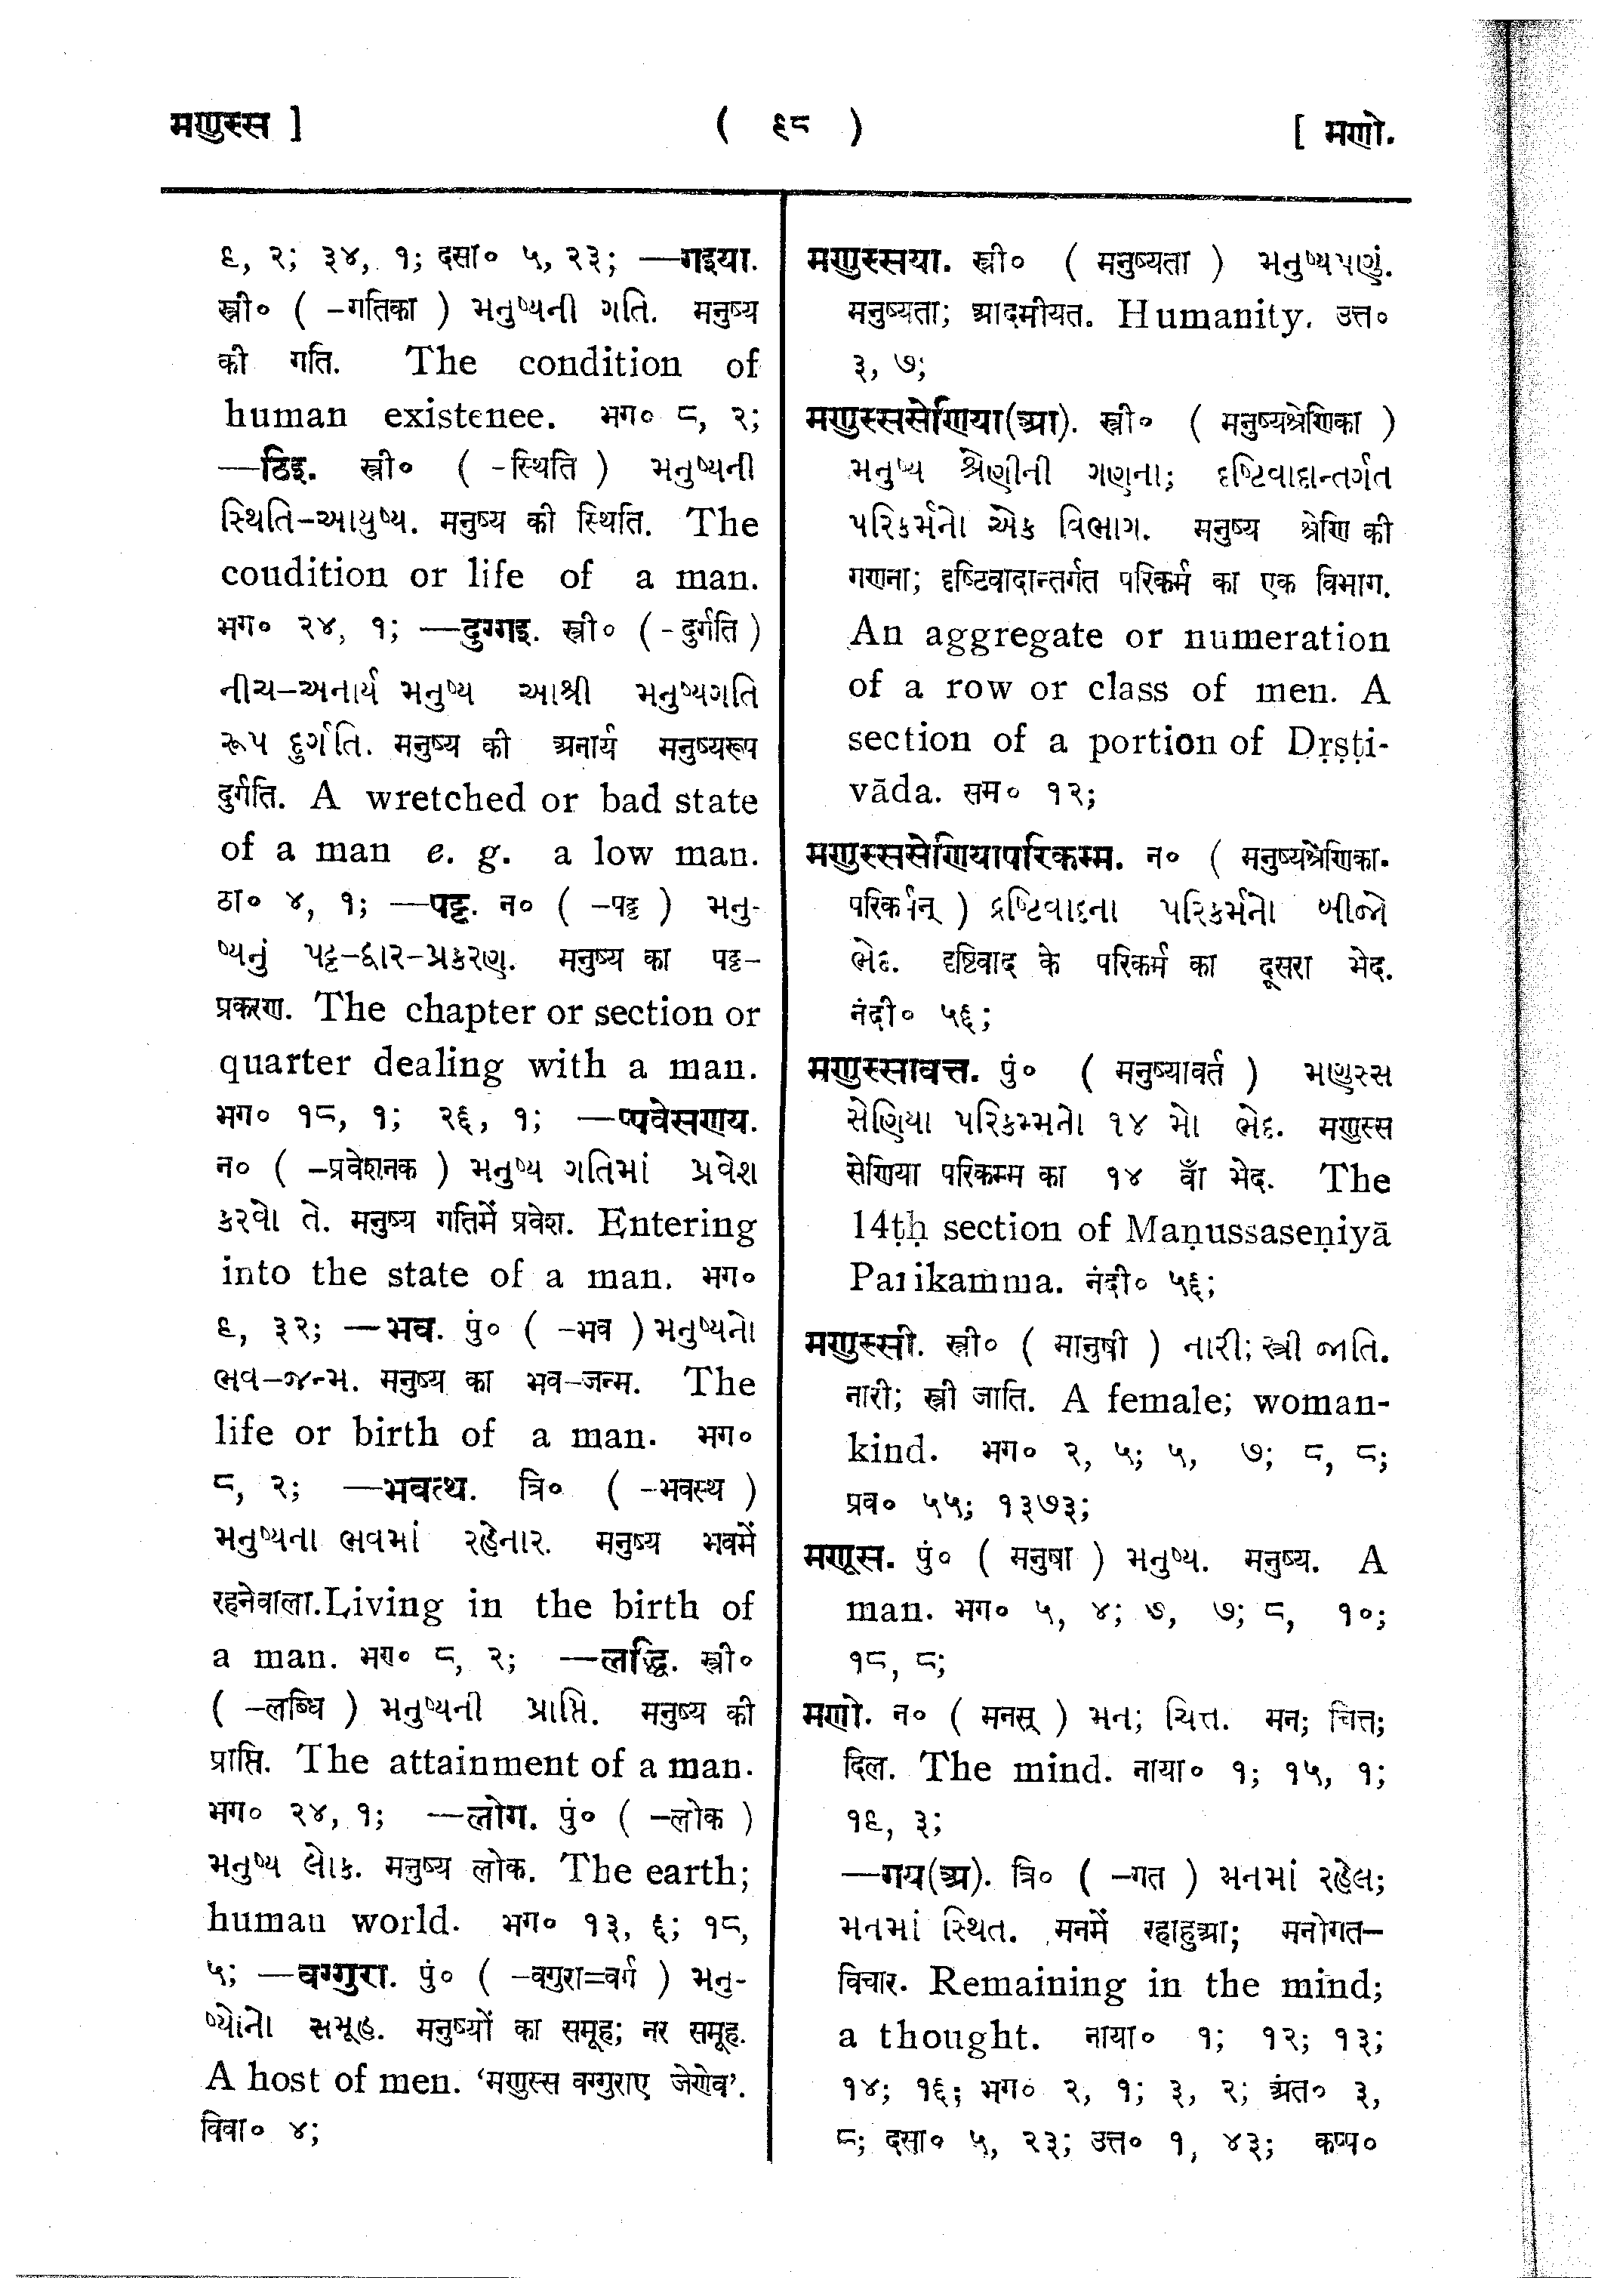 मणुस्स ]
( ९८ )
[ मणो.
९, २; ३४, १; दसा० ५, २३; —गइया.
स्त्री० ( -गतिका ) મનુષ્યની ગતિ. मनुष्य
की गति. The condition of
human existenee. भग० ८, २;
—ठिइ. स्त्री० ( -स्थिति ) મનુષ્યની
સ્થિતિ-આયુષ્ય. मनुष्य की स्थिति. The
coudition or life of a man.
भग० २४, १; —दुग्गइ. स्त्री० ( -दुर्गति )
નીચ-અનાર્ય મનુષ્ય આશ્રી મનુષ્યગતિ
રૂપ દુર્ગતિ. मनुष्य की अनार्य मनुष्यरूप
दुर्गति. A wretched or bad state
of a man e. g. a low man.
ठा० ४, १; —पट्ट. न० ( -पट्ट ) મનુ-
ષ્યનું પટ્ટ-દ્વાર-પ્રકરણ. मनुष्य का पट्ट-
प्रकरण. The chapter or section or
quarter dealing with a man.
भग० १८, १; २६, १; —प्पवेसणय.
न० ( -प्रवेशनक ) મનુષ્ય ગતિમાં પ્રવેશ
કરવો તે. मनुष्य गतिमें प्रवेश. Entering
into the state of a man. भग०
९, ३२; —भव. पुं० ( -भव ) મનુષ્યનો
ભવ-જન્મ. मनुष्य का भव-जन्म. The
life or birth of a man. भग०
८, २; —भवत्थ. त्रि० ( -भवस्थ )
મનુષ્યના ભવમાં રહેનાર. मनुष्य भवमें
रहनेवाला. Living in the birth of
a man. भग० ८, २; —लद्धि. स्त्री०
( -लब्धि ) મનુષ્યની પ્રાપ્તિ. मनुष्य की
प्राप्ति. The attainment of a man.
भग० २४, १; —लोग. पुं० ( -लोक )
મનુષ્ય લોક. मनुष्य लोक. The earth;
humau world. भग० १३, ६; १८,
५; —वग्गुरा. पुं० ( -वगुरा=वर्ग ) મનુ-
ષ્યોનો સમૂહ. मनुष्यों का समूह; नर समूह.
A host of men. ‘मणुस्स वग्गुराए जेणेव’.
विवा० ४;
मणुस्सया. स्त्री० ( मनुष्यता ) મનુષ્યપણું.
मनुष्यता; आदमीयत. Humanity. उत्त०
३, ७;
मणुस्ससेणिया(आ). स्त्री० ( मनुष्यश्रेणिका )
મનુષ્ય શ્રેણીની ગણના; દૃષ્ટિવાદાન્તર્ગત
પરિકર્મનો એક વિભાગ. मनुष्य श्रेणि की
गणना; दृष्टिवादान्तर्गत परिकर्म का एक विभाग.
An aggregate or numeration
of a row or class of men. A
section of a portion of Dṛṣṭi-
vāda. सम० १२;
मणुस्ससेणियापरिकम्म. न० ( मनुष्यश्रेणिका-
परिकर्मन् ) દૃષ્ટિવાદના પરિકર્મનો બીજો
ભેદ. दृष्टिवाद के परिकर्म का दूसरा भेद.
नंदी० ५६;
मणुस्सावत्त. पुं० ( मनुष्यावर्त ) મણુસ્સ
સેણિયા પરિકમ્મનો ૧૪ મો ભેદ. मणुस्स
सेणिया परिकम्म का १४ वाँ भेद. The
14ṭḥ section of Maṇussaseṇiyā
Parikamma. नंदी० ५६;
मणुस्सी. स्त्री० ( मानुषी ) નારી; સ્ત્રી જાતિ.
नारी; स्त्री जाति. A female; woman-
kind. भग० २, ५; ५, ७; ८, ८;
प्रव० ५५; १३७३;
मणूस. पुं० ( मनुषा ) મનુષ્ય. मनुष्य. A
man. भग० ५, ४; ७, ७; ८, १०;
१८, ८;
मणो. न० ( मनस् ) મન; ચિત્ત. मन; चित्त;
दिल. The mind. नाया० १; १५, १;
१९, ३;
—गय(अ). त्रि० ( -गत ) મનમાં રહેલ;
મનમાં સ્થિત. मनमें रहाहुआ; मनोगत-
विचार. Remaining in the mind;
a thought. नाया० १; १२; १३;
१४; १६; भग० २, १; ३, २; अंत० ३,
८; दसा० ५, २३; उत्त० १, ४३; कप्प०